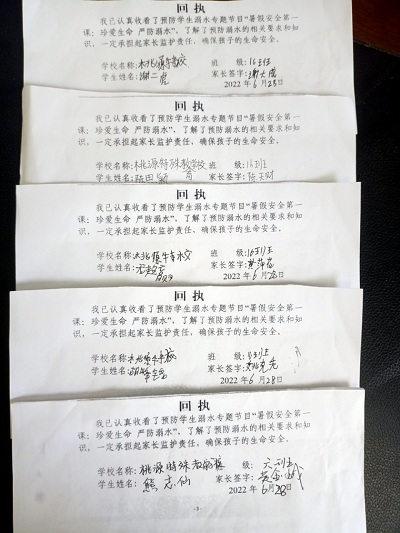 回 执
我已认真收看了预防学生溺水专题节目"暑假安全第一
课：珍爱生命 严防溺水"，了解了预防溺水的相关要求和知
识，一定承担起家长监护责任，确保孩子的生命安全。
学校名称： 班 级：
学生姓名：谢二虎 家长签字：
2022 年 6 月 28 日
回 执
我已认真收看了预防学生溺水专题节目"暑假安全第一
课：珍爱生命 严防溺水"，了解了预防溺水的相关要求和知
识，一定承担起家长监护责任，确保孩子的生命安全。
学校名称：桃源特殊教学校 班 级：16班
学生姓名： 家长签字：陈天财
2022 年 6 月 28 日
回 执
我已认真收看了预防学生溺水专题节目"暑假安全第一
课：珍爱生命 严防溺水"，了解了预防溺水的相关要求和知
识，一定承担起家长监护责任，确保孩子的生命安全。
学校名称： 班 级：
学生姓名： 家长签字：
2022 年 6 月 28 日
回 执
我已认真收看了预防学生溺水专题节目"暑假安全第一
课：珍爱生命 严防溺水"，了解了预防溺水的相关要求和知
识，一定承担起家长监护责任，确保孩子的生命安全。
学校名称： 班 级：
学生姓名： 家长签字：
2022 年 6 月 28 日
回 执
我已认真收看了预防学生溺水专题节目"暑假安全第一
课：珍爱生命 严防溺水"，了解了预防溺水的相关要求和知识，
一定承担起家长监护责任，确保孩子的生命安全。
学校名称：桃源特殊 班 级：
学生姓名：熊志仙 家长签字：
2022 年 6月28日
- 3 -